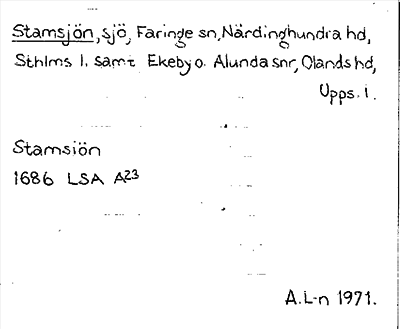 Stamsjön, sjö, Faringe sn, Närdinghundra hd,
Sthlms l. samt Ekeby o. Alunda snr, Olands hd,
Upps. l.
Stamsiön
1686 LSA A23
A.L-n 1971.